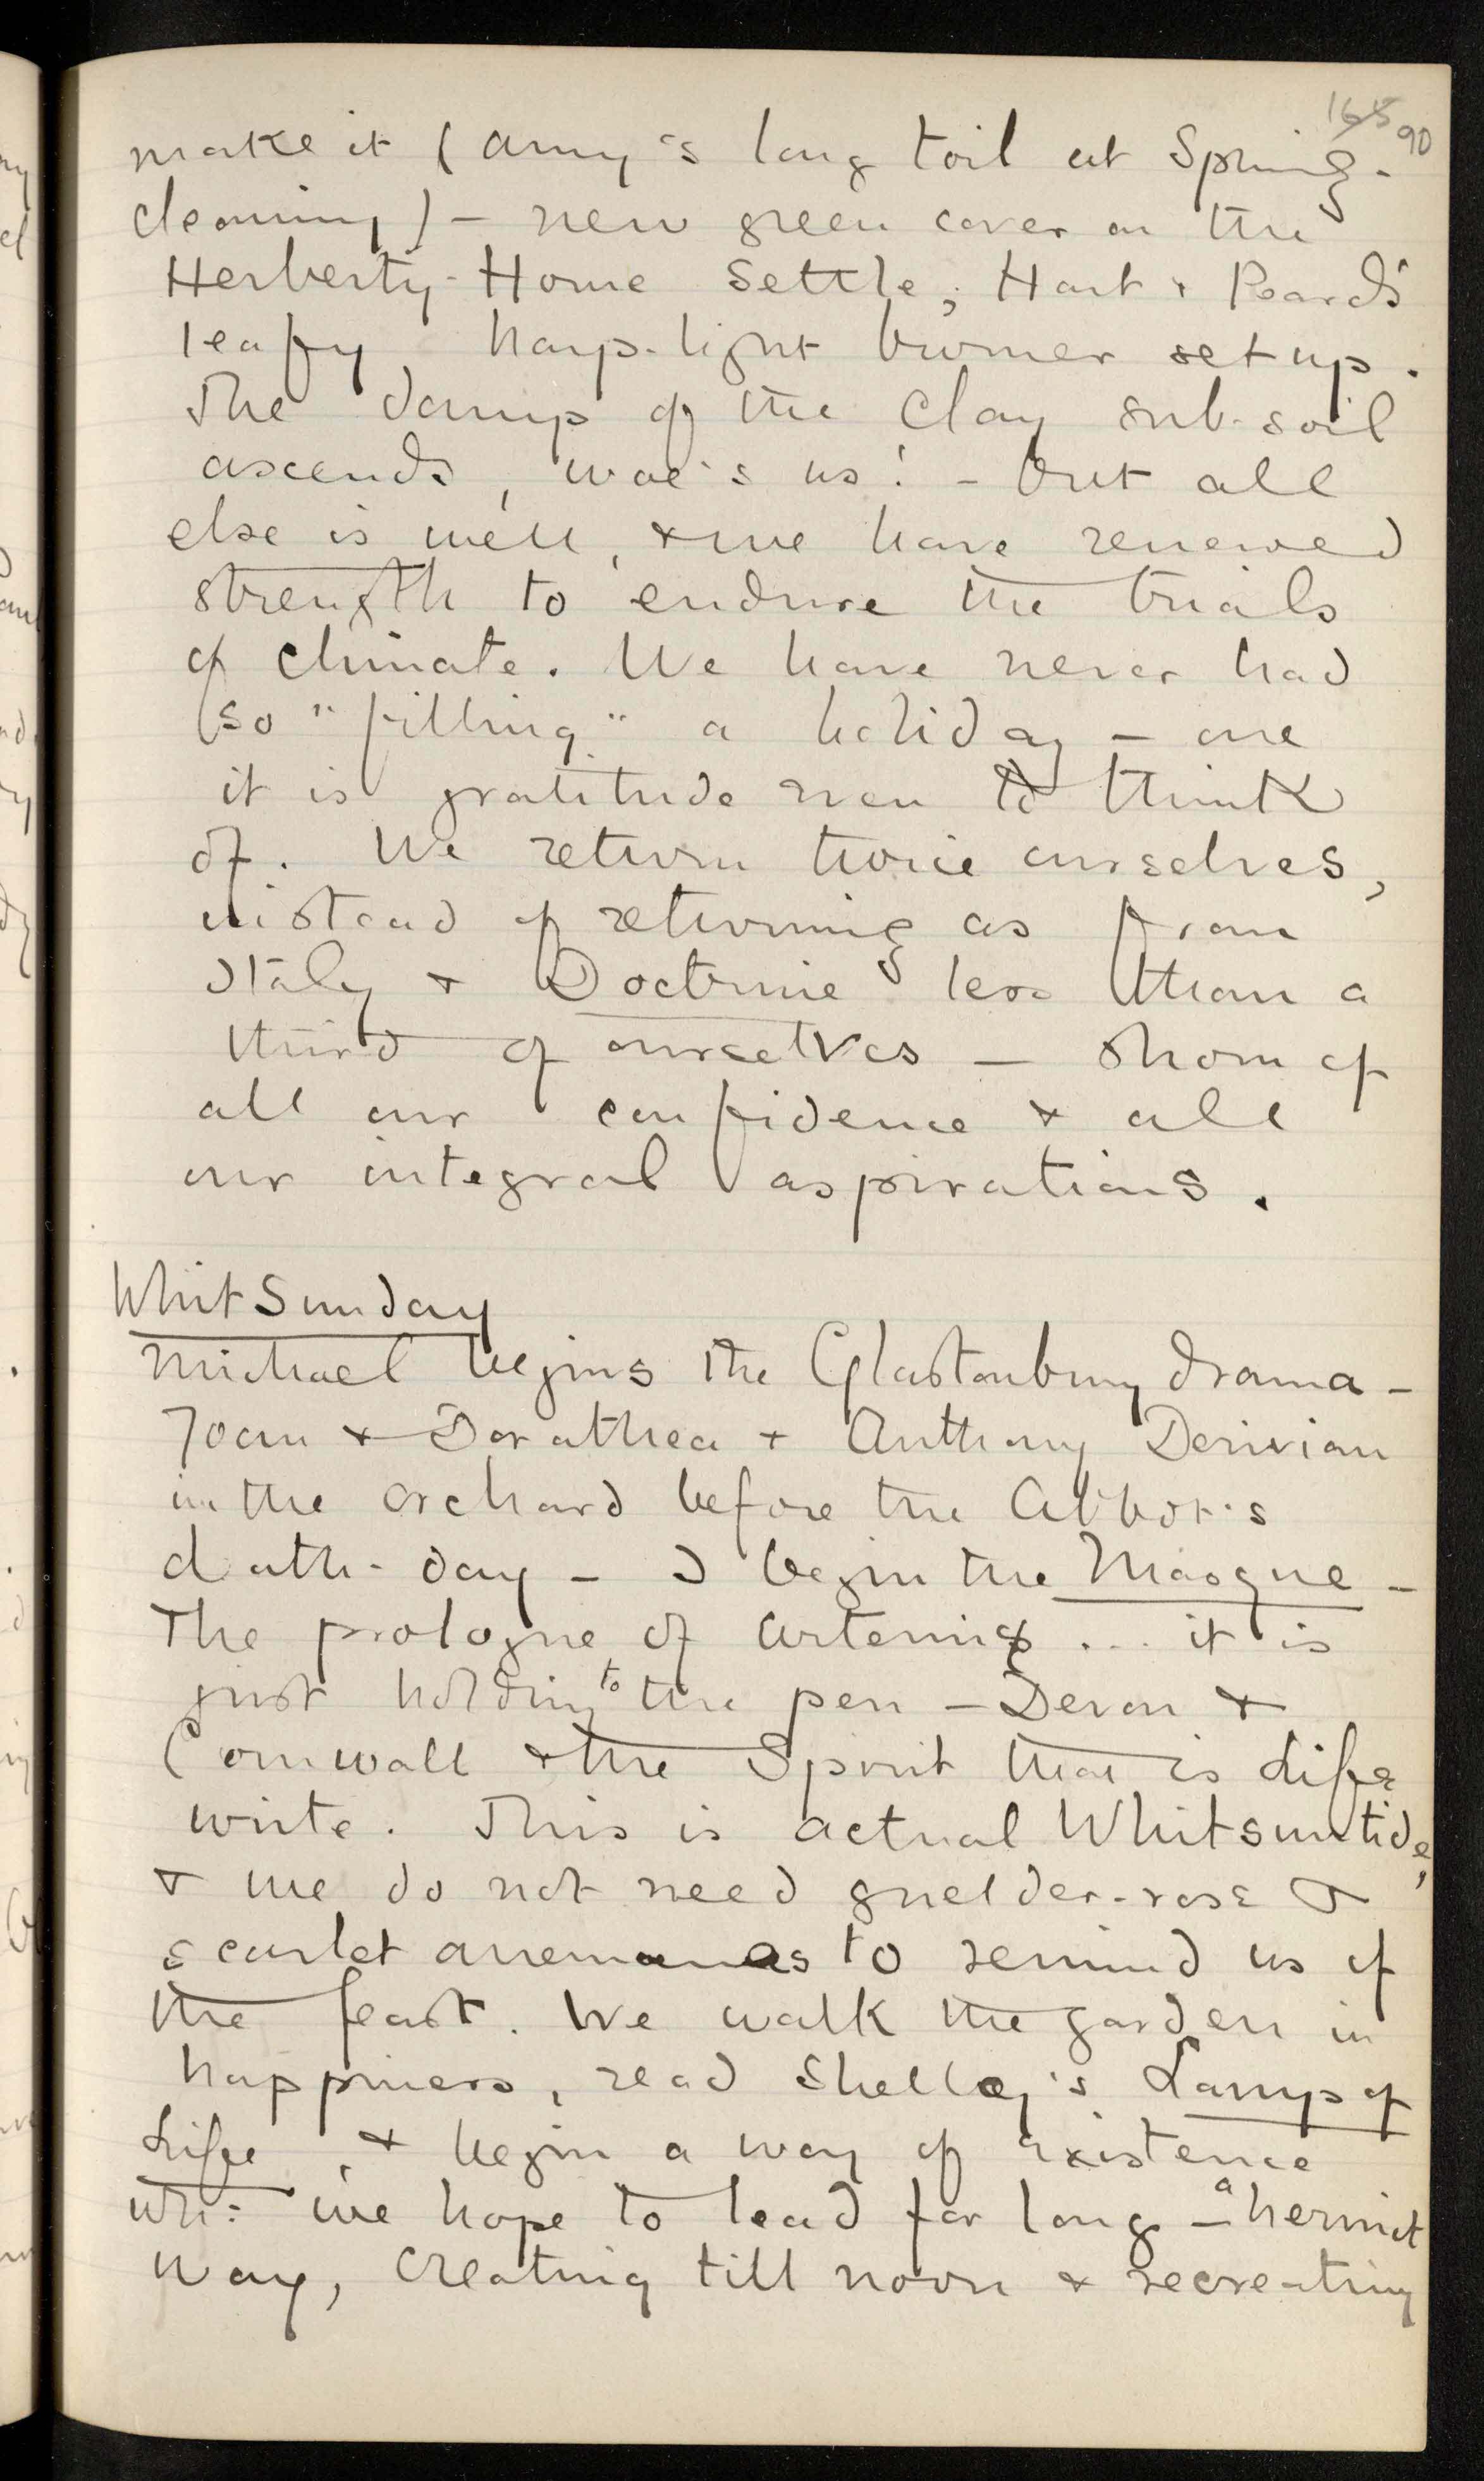 165 90
make it (Amy's long toil at Spring-
cleaning) - new green cover on the
Herberty-Home Settle; Hart & Peards'
leafy harp-light burner set up.
The damp of the clay sub-soil
ascends, woe's us! - but all
else is well, & we have renewed
strength to endure the trials
of climate. We have never had
so "filling" a holiday - one
it is gratitude now to think
of. We return twice ourselves,
instead of returning as from
Italy & Doctrine less than a
third of ourselves - shorn of
all our confidence & all
our integral aspirations.
Whit Sunday
Michael begins the Glastonbury drama -
Joan & Dorathea & Anthony Derivian
in the orchard before the Abbot's
death-day - I begin the Masque -
The prologue of Artemis ... it is
just holding to the pen - Devon &
Cornwall & the Spirit that is Life
write. This is actual Whitsuntide,
& we do not need guelder-rose &
scarlet anemones to remind us of
the feast. We walk the garden in
happiness, read Shelley's Lamp of
Life, & begin a way of existence
wh: we hope to lead for long - a hermit
way, creating till noon & recreating